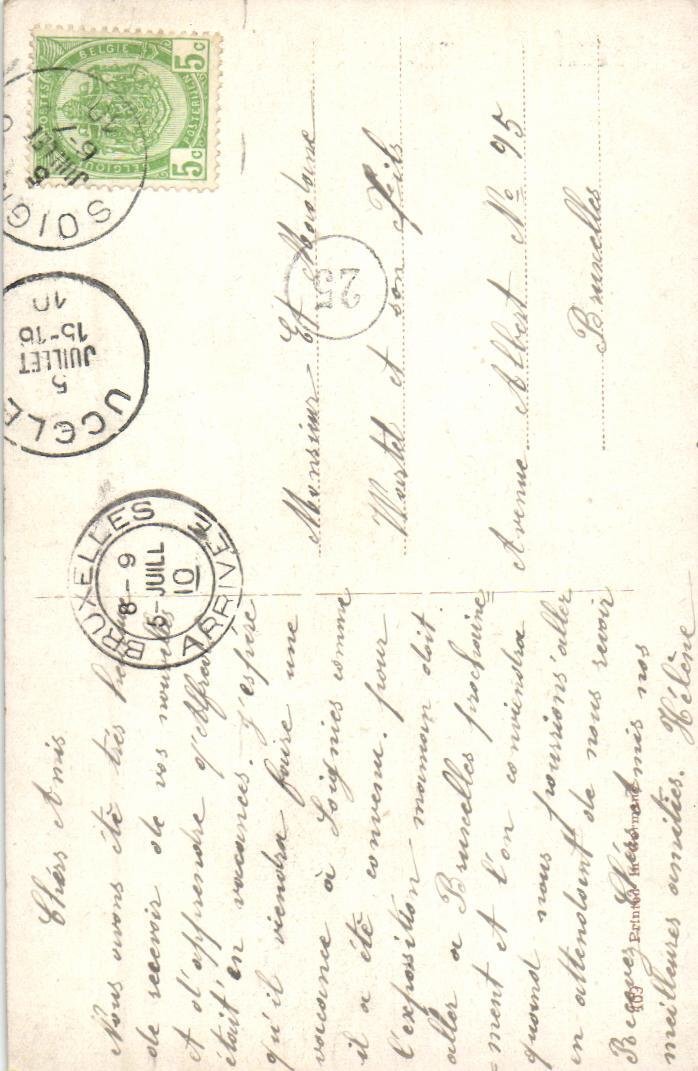 Chèrs Amis
Nous avons été très
de recevoir de vos
et d'apprendre
était en vacances. J'espère
qu'il viendra faire une
vacance à Soignies comme
il a été convenu. pour
l'exposition maman doit
aller à Bruxelles prochaine=
=ment et l'on conviendra
quand nous pourrions aller
en attendant de nous revoir
Recevez Chèrs Amis nos
meilleures amitiés. Hélène
Monsieur Et Madame
et son Fils
Avenue Albert No 95
Bruxelles
5c BELGIE 5c
POSTES POSTERIJEN
BELGIQUE
SOIGN
5
JUILLET
6-7
UCCLE
5
JUILLET
15-16
10
BRUXELLES
8-9
5-JUILL
10
ARRIVÉE
25
Printed in Germany